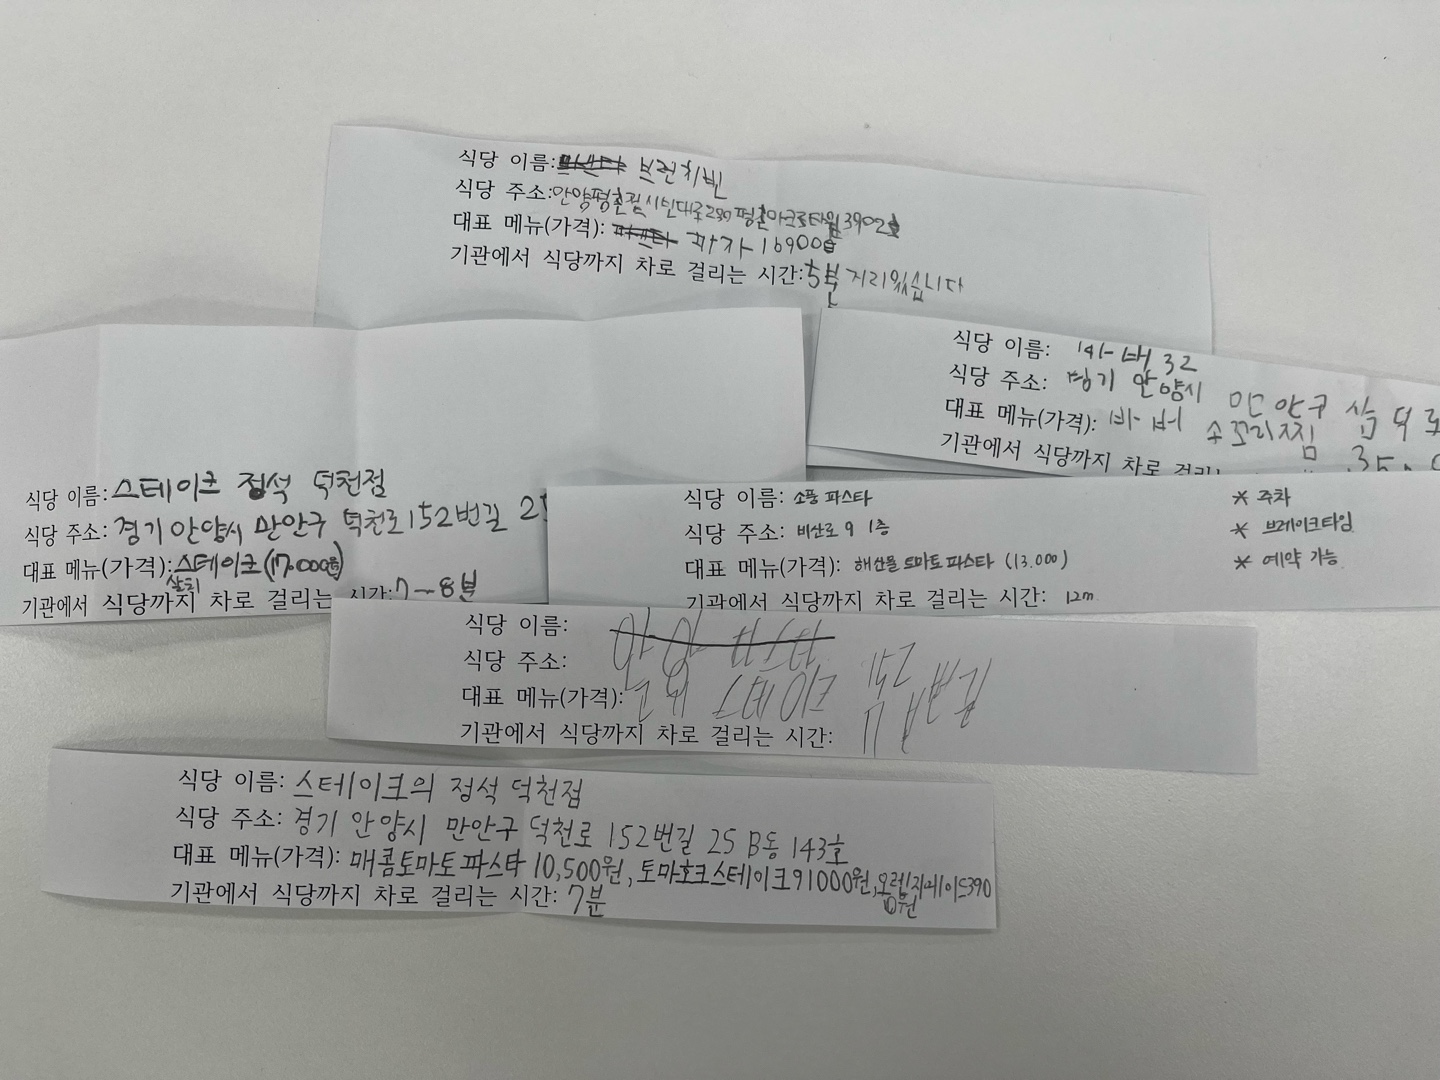 식당 이름: 브런치빈
식당 주소: 안양평촌점 시민대로 230 평촌아크로타워 3902호
대표 메뉴(가격): 피자 16900원
기관에서 식당까지 차로 걸리는 시간: 5분 거리있습니다
식당 이름: 32
식당 주소: 경기 안양시 만안구 삼덕로
대표 메뉴(가격): 소꼬리찜 35
기관에서 식당까지 차로 걸리는
식당 이름: 스테이크 정석 덕천점
식당 주소: 경기 안양시 만안구 덕천로 152번길 25
대표 메뉴(가격): 스테이크(17,000원)
살치
기관에서 식당까지 차로 걸리는 시간: 7~8분
식당 이름: 소풍 파스타
식당 주소: 비산로 9 1층
대표 메뉴(가격): 해산물 토마토 파스타 (13,000)
기관에서 식당까지 차로 걸리는 시간: 12m
* 주차
* 브레이크타임
* 예약 가능
식당 이름:
식당 주소:
대표 메뉴(가격): 스테이크
기관에서 식당까지 차로 걸리는 시간:
식당 이름: 스테이크의 정석 덕천점
식당 주소: 경기 안양시 만안구 덕천로 152번길 25 B동 143호
대표 메뉴(가격): 매콤토마토파스타 10,500원, 토마호크스테이크 91000원, 오렌지에이드 390
0원
기관에서 식당까지 차로 걸리는 시간: 7분